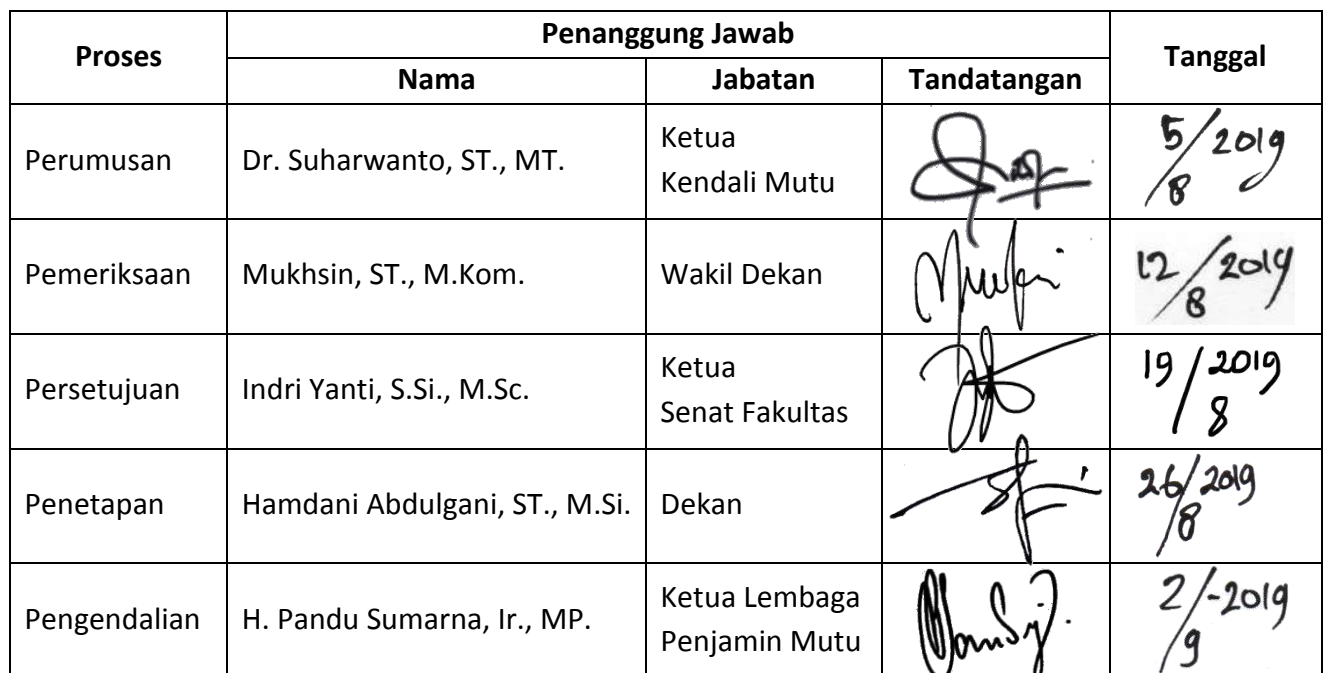 Proses
Penanggung Jawab
Tanggal
Nama
Jabatan
Tandatangan
Perumusan
Dr. Suharwanto, ST., MT.
Ketua
Kendali Mutu
5/8 2019
Pemeriksaan
Mukhsin, ST., M.Kom.
Wakil Dekan
12/8 2019
Persetujuan
Indri Yanti, S.Si., M.Sc.
Ketua
Senat Fakultas
19/8 2019
Penetapan
Hamdani Abdulgani, ST., M.Si.
Dekan
26/8 2019
Pengendalian
H. Pandu Sumarna, Ir., MP.
Ketua Lembaga
Penjamin Mutu
2/9-2019